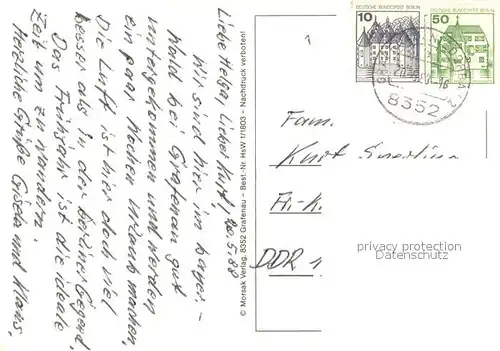 Liebe Helga, Lieber Kurt, 20.5.88
wir sind hier im bayer.-
Wald bei Grafenau gut
untergekommen und werden
ein paar Wochen Urlaub machen.
Die Luft ist hier doch viel
besser als in der Berliner Gegend.
Das Frühjahr ist die ideale
Zeit um zu wandern.
Herzliche Grüße Gisela und Klaus.
© Morsak Verlag, 8352 Grafenau – Best.-Nr. HsW 1/1803 - Nachdruck verboten!
DEUTSCHE BUNDESPOST BERLIN
10
DEUTSCHE BUNDESPOST BERLIN
50
8352
Fam.
Kurt
DDR
privacy protection
Datenschutz